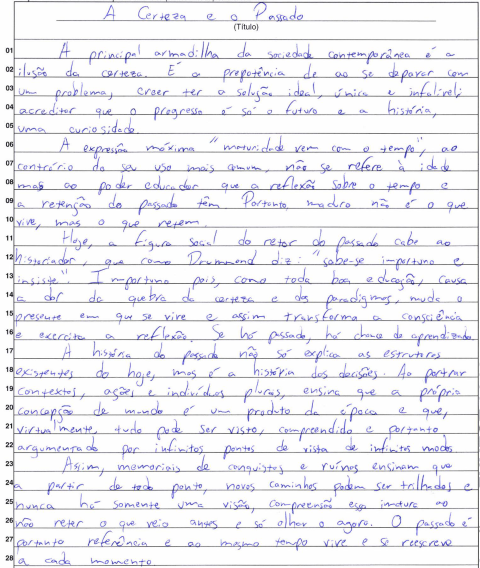 A Certeza e o Passado
(Título)
01 A principal armadilha da sociedade contemporânea é a
02 ilusão da certeza. É a prepotência de ao se deparar com
03 um problema, creer ter a solução ideal, única e infalível;
04 acreditar que o progresso é só o futuro e a história,
05 uma curiosidade.
06 A expressão máxima "maturidade vem com o tempo", ao
07 contrário do seu uso mais comum, não se refere à idade
08 mas ao poder educador que a reflexão sobre o tempo e
09 a retenção do passado têm. Portanto, maduro não é o que
10 vive, mas o que retem.
11 Hoje, a figura social do retor do passado cabe ao
12 historiador, que como Drummond diz: "sabe-se importuno e
13 insiste". Importuna pois, como toda boa educação, causa
14 a dor da quebra da certeza e dos paradigmas, muda o
15 presente em que se vive e assim transforma a consciência
16 e exercita a reflexão. Se há passado, há chance de aprendizado.
17 A história do passado não só explica as estruturas
18 existentes do hoje, mas é a história das decisões. Ao portrar
19 contextos, ações e indivíduos plurais, ensina que a própria
20 concepção de mundo é um produto da época e que,
21 virtualmente, tudo pode ser visto, compreendido e portanto
22 argumentado por infinitos pontos de vista de infinitos modos
23 Asim, memoriais de conquistas e ruínas ensinam que
24 a partir de todo ponto, novos caminhos podem ser trilhados e
25 nunca há somente uma visão, compreensão essa imatura ao
26 não reter o que veio antes e só olhar o agora. O passado é
27 portanto referência e ao mesmo tempo vive e se reescreve
28 a cada momento